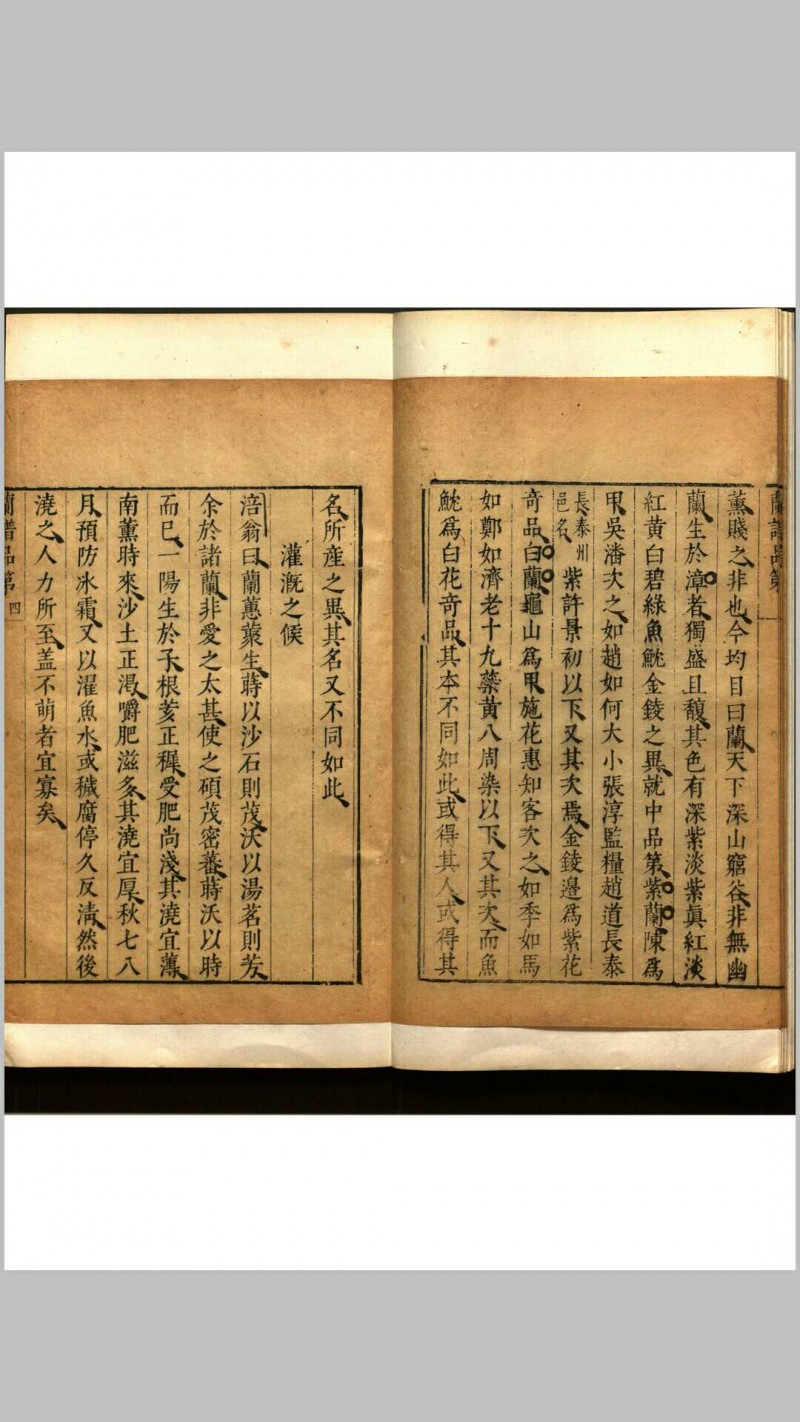 蘭譜品第
薰賤之非也今均目曰蘭天下深山窮谷非無幽
蘭生於漳者獨盛且馥其色有深紫淡紫眞紅淡
紅黃白碧綠魚魫金錢之異就中品第紫蘭陳爲
甲吳潘次之如趙如何大小張淳監糧趙道長泰
長泰州
邑名
紫許景初以下又其次焉金錢邉爲紫花
奇品白蘭竈山爲甲施花惠知客次之如季如馬
如鄭如濟老十九蘂黃八周染以下又其次而魚
魫爲白花奇品其本不同如此或得其人或得其
名所產之異其名又不同如此
灌溉之候
涪翁曰蘭蕙叢生蒔以沙石則茂沃以湯茗則芳
余於諸蘭非愛之太甚使之碩茂密蕃蒔沃以時
而已一陽生於子根荄正穉受肥尚淺其澆宜薄
南薰時來沙土正渴嚼肥滋多其澆宜厚秋七八
月預防冰霜又以濯魚水或穢腐停久反淸然後
澆之人力所至盖不萌者宜寡矣
蘭譜品第 四